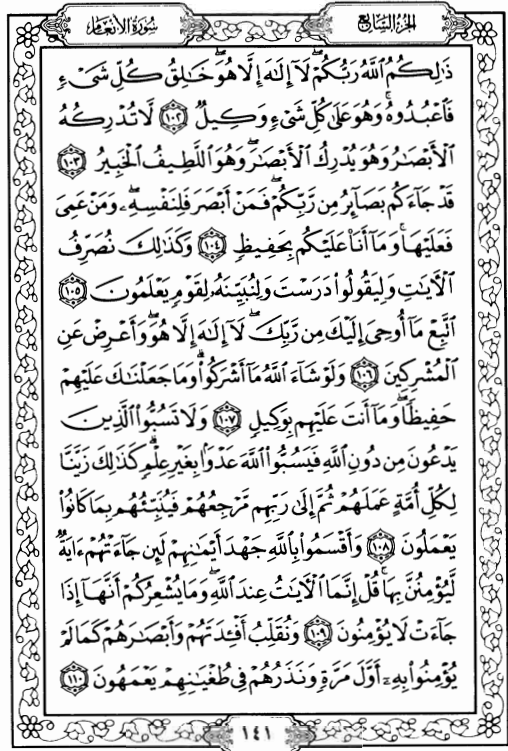 سُورَةُ الأَنْعَامِ الجُزْءُ السَّابِعُ
ذَٰلِكُمُ ٱللَّهُ رَبُّكُمْ ۖ لَآ إِلَٰهَ إِلَّا هُوَ ۖ خَٰلِقُ كُلِّ شَىْءٍ
فَٱعْبُدُوهُ ۚ وَهُوَ عَلَىٰ كُلِّ شَىْءٍ وَكِيلٌ ١٠٢ لَّا تُدْرِكُهُ
ٱلْأَبْصَٰرُ وَهُوَ يُدْرِكُ ٱلْأَبْصَٰرَ ۖ وَهُوَ ٱللَّطِيفُ ٱلْخَبِيرُ ١٠٣
قَدْ جَآءَكُم بَصَآئِرُ مِن رَّبِّكُمْ ۖ فَمَنْ أَبْصَرَ فَلِنَفْسِهِۦ ۖ وَمَنْ عَمِىَ
فَعَلَيْهَا ۚ وَمَآ أَنَا۠ عَلَيْكُم بِحَفِيظٍ ١٠٤ وَكَذَٰلِكَ نُصَرِّفُ
ٱلْءَايَٰتِ وَلِيَقُولُوا۟ دَرَسْتَ وَلِنُبَيِّنَهُۥ لِقَوْمٍ يَعْلَمُونَ ١٠٥
ٱتَّبِعْ مَآ أُوحِىَ إِلَيْكَ مِن رَّبِّكَ ۖ لَآ إِلَٰهَ إِلَّا هُوَ ۖ وَأَعْرِضْ عَنِ
ٱلْمُشْرِكِينَ ١٠٦ وَلَوْ شَآءَ ٱللَّهُ مَآ أَشْرَكُوا۟ ۗ وَمَا جَعَلْنَٰكَ عَلَيْهِمْ
حَفِيظًا ۖ وَمَآ أَنتَ عَلَيْهِم بِوَكِيلٍ ١٠٧ وَلَا تَسُبُّوا۟ ٱلَّذِينَ
يَدْعُونَ مِن دُونِ ٱللَّهِ فَيَسُبُّوا۟ ٱللَّهَ عَدْوًۢا بِغَيْرِ عِلْمٍ ۗ كَذَٰلِكَ زَيَّنَّا
لِكُلِّ أُمَّةٍ عَمَلَهُمْ ثُمَّ إِلَىٰ رَبِّهِم مَّرْجِعُهُمْ فَيُنَبِّئُهُم بِمَا كَانُوا۟
يَعْمَلُونَ ١٠٨ وَأَقْسَمُوا۟ بِٱللَّهِ جَهْدَ أَيْمَٰنِهِمْ لَئِن جَآءَتْهُمْ ءَايَةٌ
لَّيُؤْمِنُنَّ بِهَا ۚ قُلْ إِنَّمَا ٱلْءَايَٰتُ عِندَ ٱللَّهِ ۖ وَمَا يُشْعِرُكُمْ أَنَّهَآ إِذَا
جَآءَتْ لَا يُؤْمِنُونَ ١٠٩ وَنُقَلِّبُ أَفْـِٔدَتَهُمْ وَأَبْصَٰرَهُمْ كَمَا لَمْ
يُؤْمِنُوا۟ بِهِۦٓ أَوَّلَ مَرَّةٍ وَنَذَرُهُمْ فِى طُغْيَٰنِهِمْ يَعْمَهُونَ ١١٠
١٤١